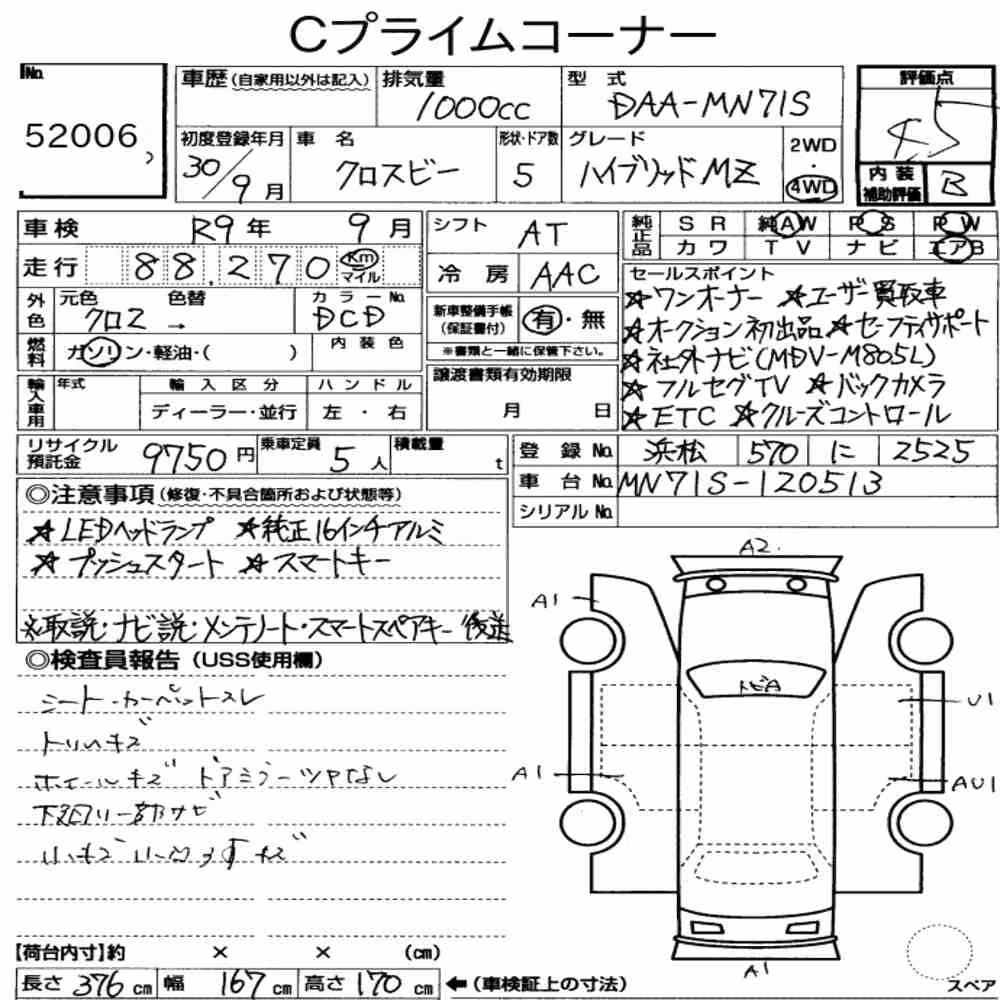 Cプライムコーナー
No.
52006
車歴(自家用以外は記入)
排気量
1000cc
型式
DAA-MN71S
評価点
4.5
初度登録年月
30/9月
車名
クロスビー
形状・ドア数
5
グレード
ハイブリッドMZ
2WD
・
4WD
内装
補助評価
B
車検 R9年 9月
シフト AT
純正品
SR 純AW PS PW
カワ TV ナビ エアB
走行 88,270 Km
マイル
冷房 AAC
外色
元色 色替
クロ2 →
カラーNo.
DCD
新車整備手帳
(保証書付)
有・無
※書類と一緒に保管下さい。
燃料
ガソリン・軽油・( )
内装色
輸入車用
年式
輸入区分
ディーラー・並行
ハンドル
左・右
譲渡書類有効期限
月 日
セールスポイント
☆ワンオーナー ☆ユーザー買取車
☆オークション初出品 ☆セーフティサポート
☆社外ナビ(MDV-M805L)
☆フルセグTV ☆バックカメラ
☆ETC ☆クルーズコントロール
リサイクル
預託金
9750円
乗車定員
5人
積載量
t
登録No. 浜松 570 に 2525
車台No. MN71S-120513
シリアルNo.
◎注意事項(修復・不具合箇所および状態等)
☆LEDヘッドランプ ☆純正16インチアルミ
☆プッシュスタート ☆スマートキー
※取説・ナビ説・メンテノート・スマートスペアキー後送
◎検査員報告(USS使用欄)
シート・カーペットスレ
トリムキズ
ホイールキズ ドアミラーツヤなし
下廻り一部サビ
小キズ
A2.
A1
トビA
U1
A1
AU1
A1
スペア
【荷台内寸】約 × × (cm)
長さ 376 cm 幅 167 cm 高さ 170 cm ←(車検証上の寸法)